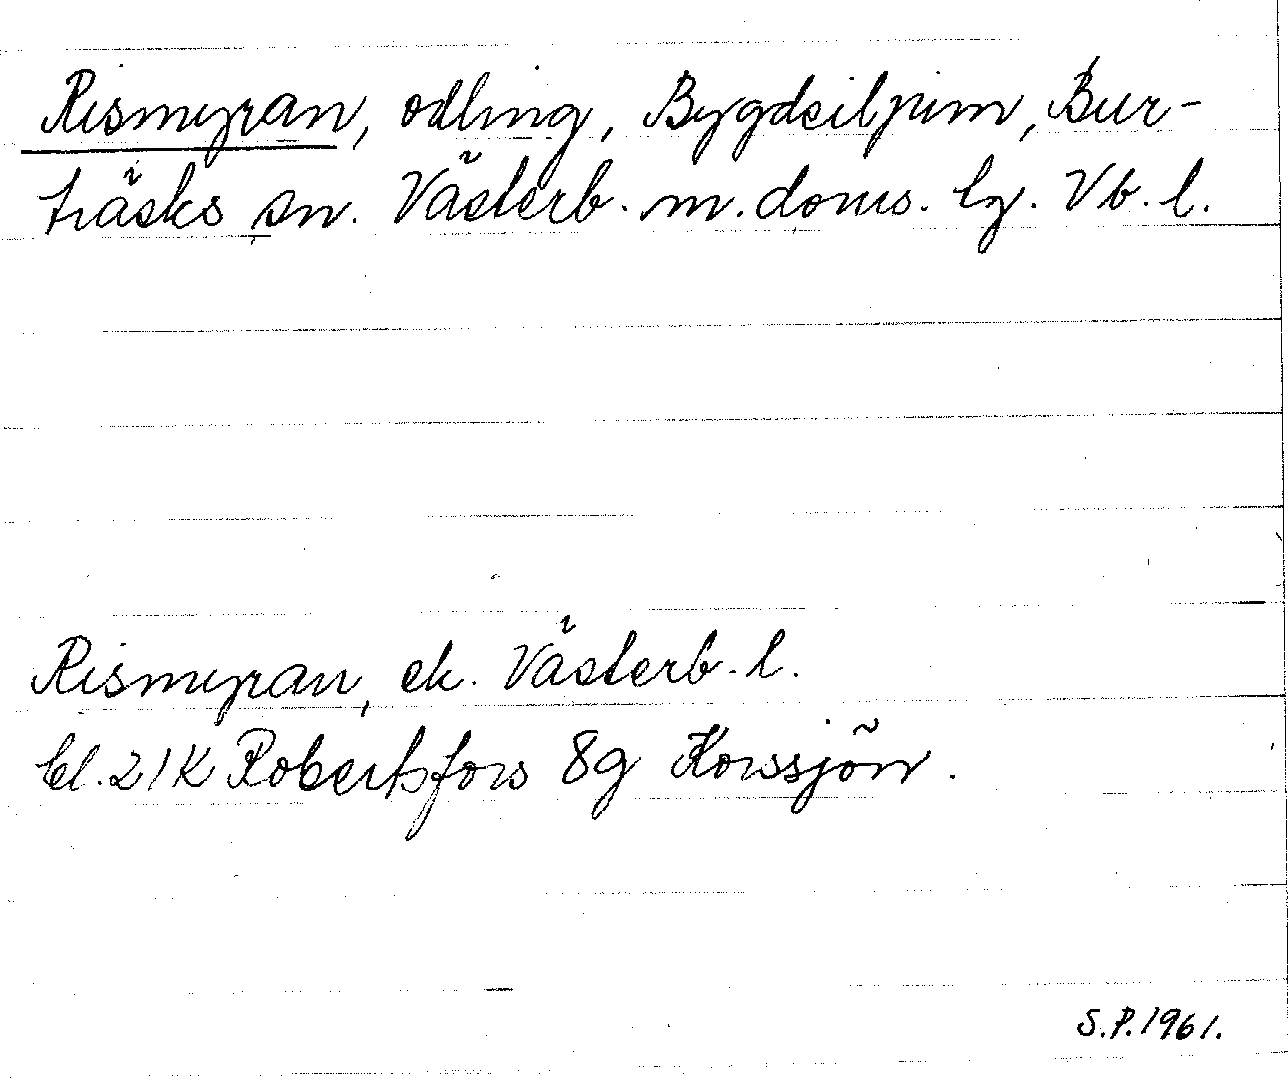 Rismyran, odling, Bygdeiljum, Bur-
träsks sn. Västerb. m. doms. lg. Vb. l.
Rismyran, ek. Västerb. l.
bl. 21K Robertsfors 8g Korssjön.
S.P. 1961.